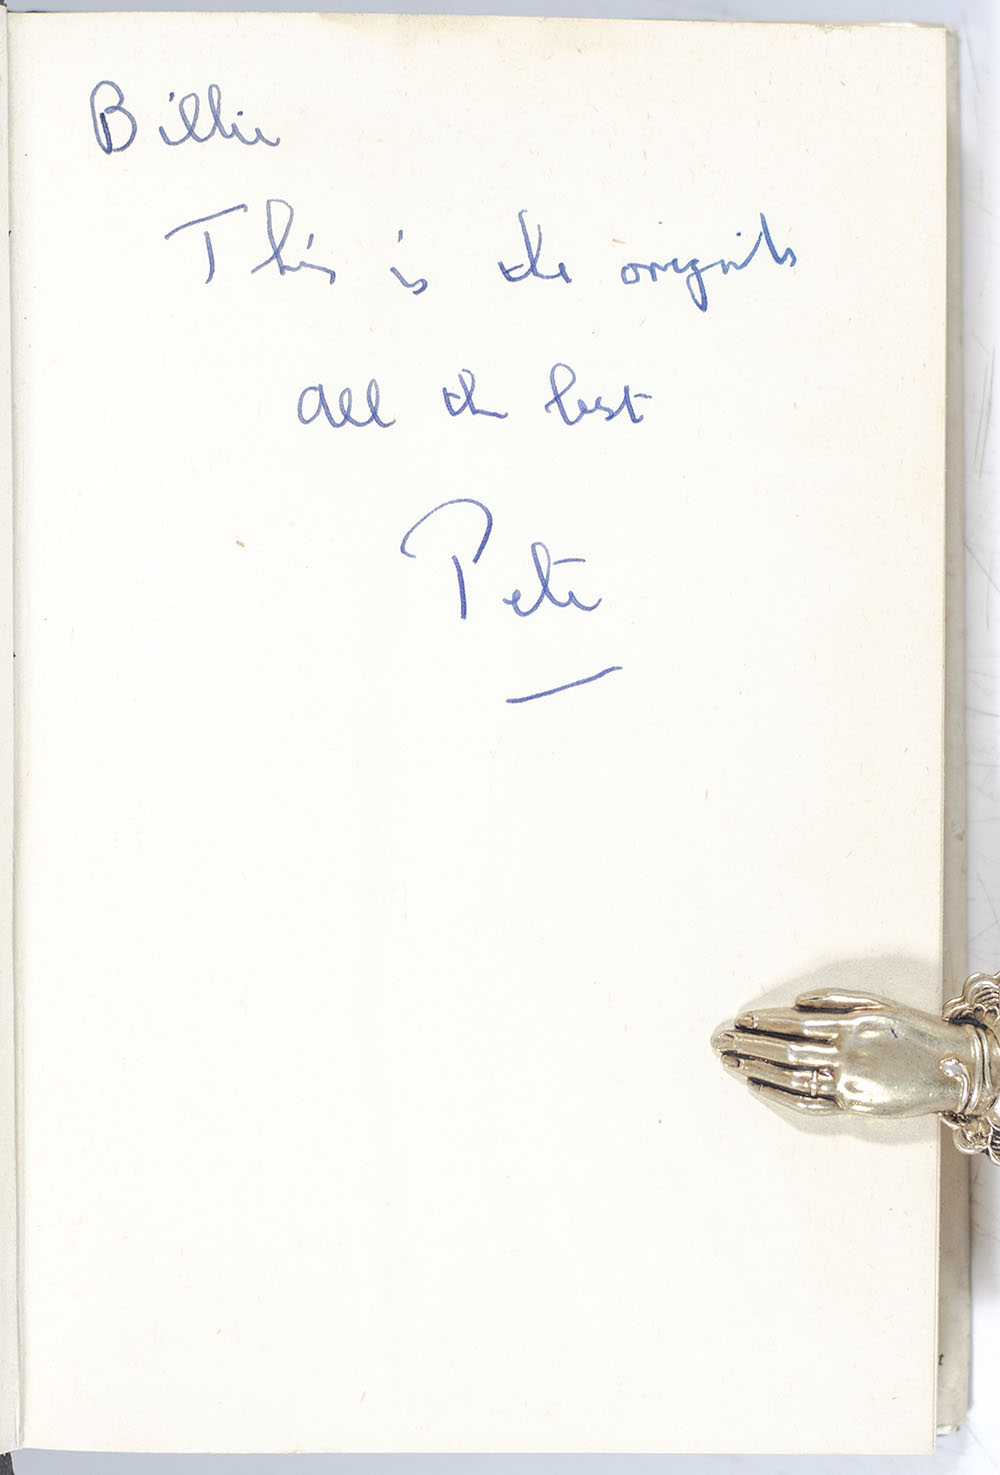 Billie
This is the
all the best
Pete